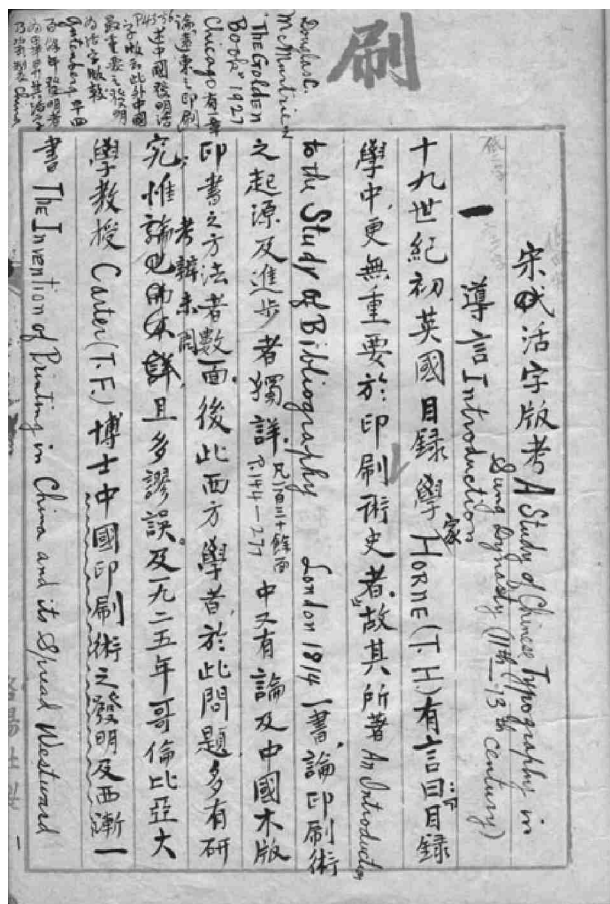 宋代活字版考 A Study of Chinese Typography in
Sung Dynasty (11th—13th century)
一 導言 Introduction
十九世紀初,英國目録學家 HORNE (T. H.) 有言曰:目録
學中,更無重要於印刷術史者,故其所著 An Introduction
to the Study of Bibliography London 1814 一書,論印刷術
之起源及進步者獨詳,凡一百三十餘面 P.144—277 中又有論及中國木版
印書之方法者數面。後此西方學者,於此問題,多有研
究,惟考辨未周,且多謬誤。及一九二五年哥倫比亞大
學教授 Carter (T. F.) 博士中國印刷術之發明及西漸一
書 The Invention of Printing in China and its Spread Westward
刷
Douglas C.
McMurtrie
"The Golden
Book" 1927
Chicago 有一章
論遠東之印刷
述中國發明活
字版
最重要之發明
為活字版較
Gutenberg 早四
1